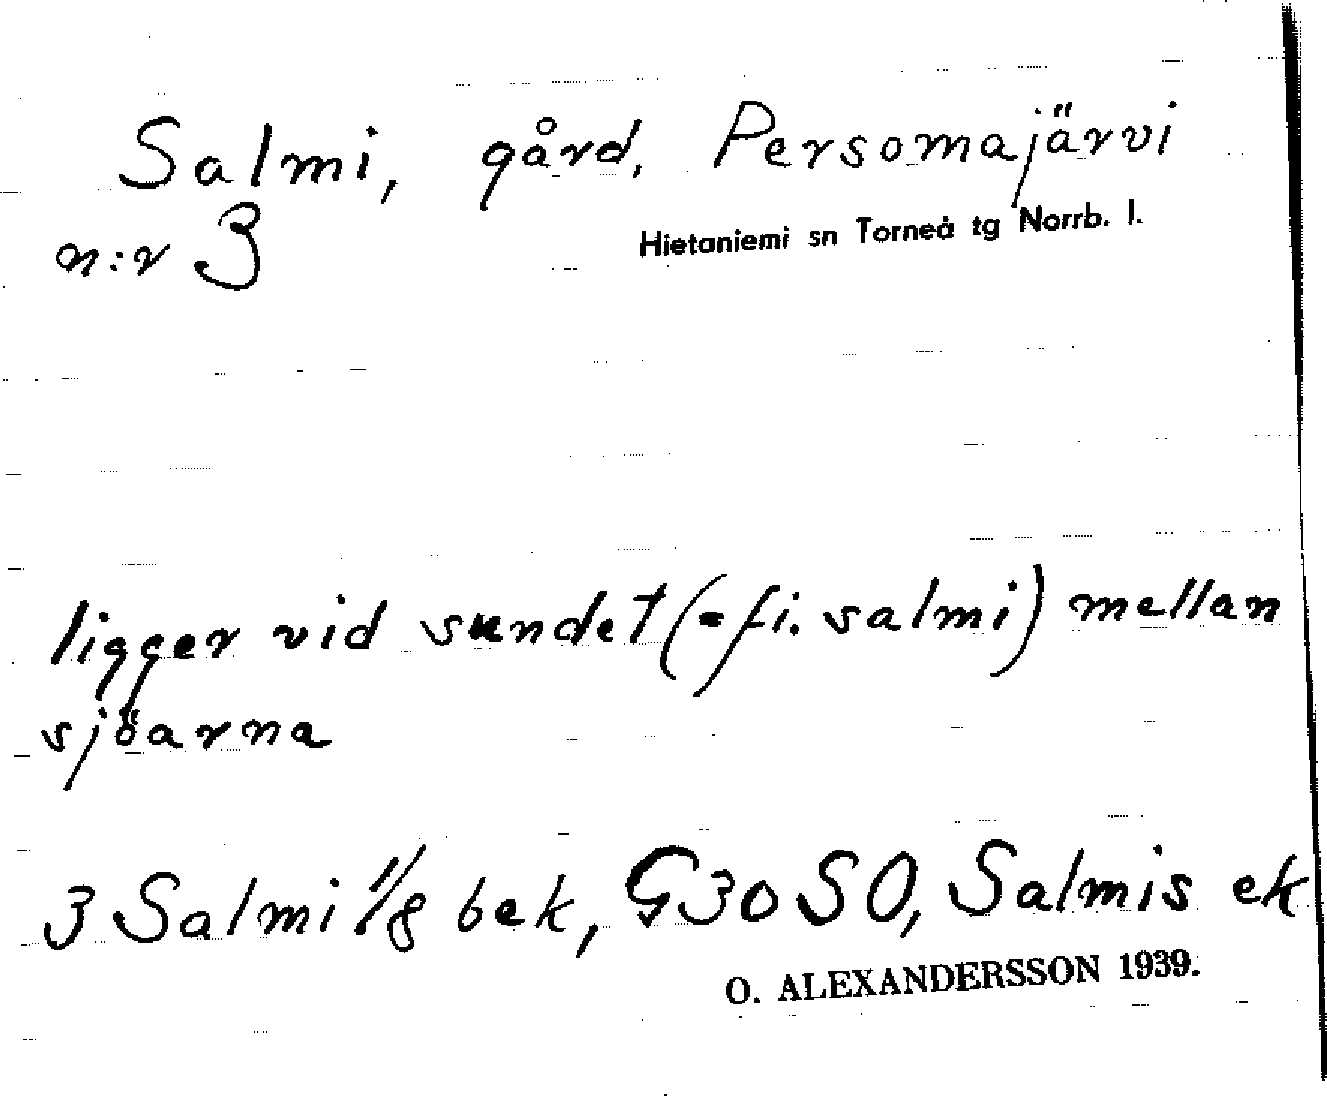 Salmi, gård, Persomajärvi
n:r 3
Hietaniemi sn Torneå tg Norrb. l.
ligger vid sundet (= fi. salmi) mellan
sjöarna
3 Salmi 1/8 bek, G30S0, Salmis ek
O. ALEXANDERSSON 1939.